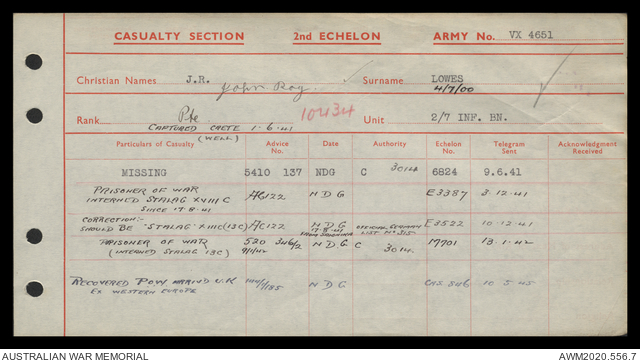 CASUALTY SECTION 2nd ECHELON ARMY No. VX 4651
Christian Names J.R. John Roy. Surname LOWES
4/7/00
Rank Pte 10434 Unit 2/7 INF. BN.
CAPTURED CRETE 1.6.41
(WELL)
Particulars of Casualty Advice No. Date Authority Echelon No. Telegram Sent Acknowledgment Received
MISSING 5410 137 NDG C 3014 6824 9.6.41
PRISONER OF WAR
INTERNED STALAG XVIIIC AC122 NDG E3387 3.12.41
SINCE 17.8.41
CORRECTION:-
SHOULD BE "STALAG" XIIIC (13C) AC122 NDG 17.8.41 FROM SALONIKA OFFICIAL GERMAN LIST No 315 E3522 10.12.41
PRISONER OF WAR 520 346/2 NDG C 3014 17701 13.1.42
(INTERNED STALAG 13C) 9/1/42
RECOVERED POW ARRIVED U.K NDG CAS. 846 10.5.45
EX WESTERN EUROPE
AUSTRALIAN WAR MEMORIAL AWM2020.556.7